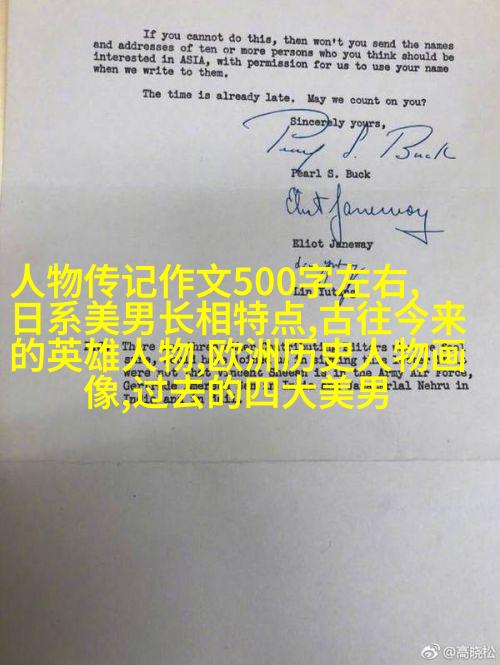 If you cannot do this, then won't you send the names
and addresses of ten or more persons who you think should be
interested in ASIA, with permission for us to use your name
when we write to them.
The time is already late. May we count on you?
Sincerely yours,
Pearl S. Buck
Pearl S. Buck
Eliot Janeway
Eliot Janeway
Lin Yutang
人物传记作文500字左右,
日系美男长相特点,古往今来
的英雄人物,欧洲历史人物画
像,过去的四大美男
were not that Vincent Sheean is in the Army Air Force,
Nehru in
@高晓松